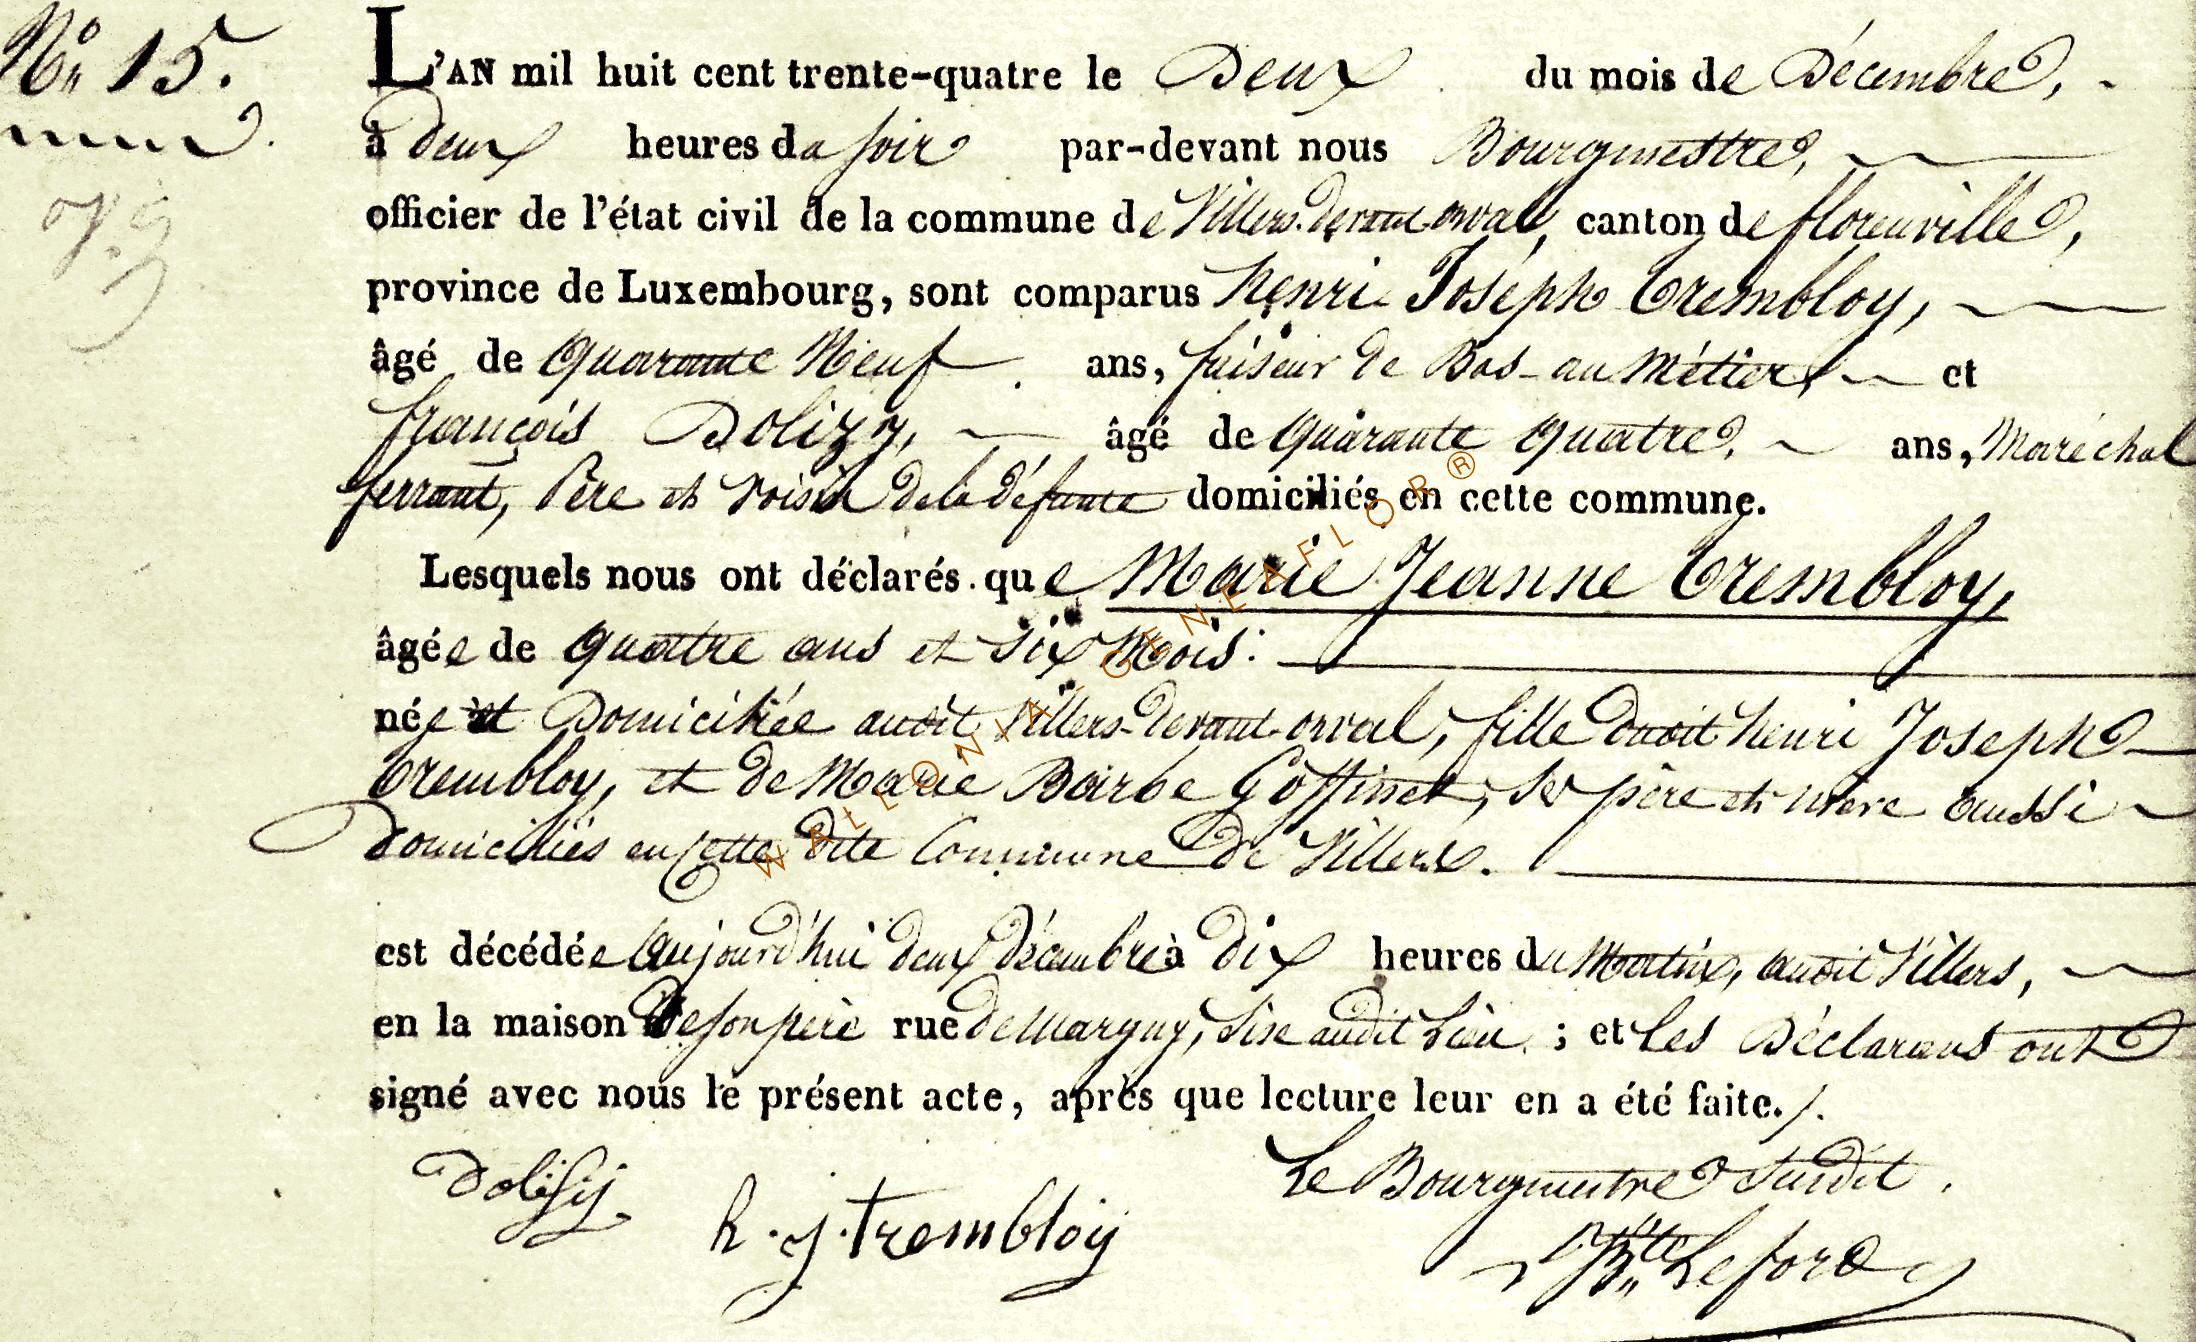 N° 15.
L'AN mil huit cent trente-quatre le Deux du mois de Décembre,
à deux heures du soir par-devant nous Bourgmestre,
officier de l'état civil de la commune de Villers-devant-orval, canton de florenville,
province de Luxembourg, sont comparus henri Joseph Trembloy,
âgé de quarante Neuf ans, faiseur de Bas-au métier, et
françois Dolizy, âgé de quarante quatre, ans, Maréchal
ferrant, Père et voisin de la défunte domiciliés en cette commune.
Lesquels nous ont déclarés que Marie Jeanne Trembloy,
âgée de quatre ans et six Mois.
née et Domiciliée audit Villers-devant-orval, fille dudit henri Joseph
Trembloy, et de Marie Barbe Goffinet, ses père et mère aussi
domiciliés en cette dite Commune de Villers.
est décédée aujourd'hui deux décembre à dix heures du Matin, audit Villers,
en la maison de son père rue de Margny, sise audit Lieu ; et les Déclarans ont
signé avec nous le présent acte, après que lecture leur en a été faite./.
Le Bourgmestre Susdit.
Dolisij
h. j. trembloij
WALLONIA GENEAFLOR ®